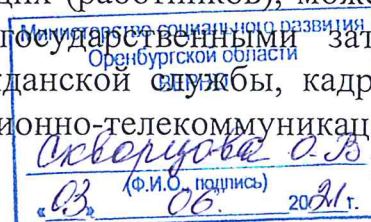 щих (работников), може
Министерство социального развития
государственными зат
Оренбургской области
жданской службы, кадр
ионно-телекоммуникац
Скворцова О.В
(Ф.И.О., подпись)
«03» 06. 2021г.